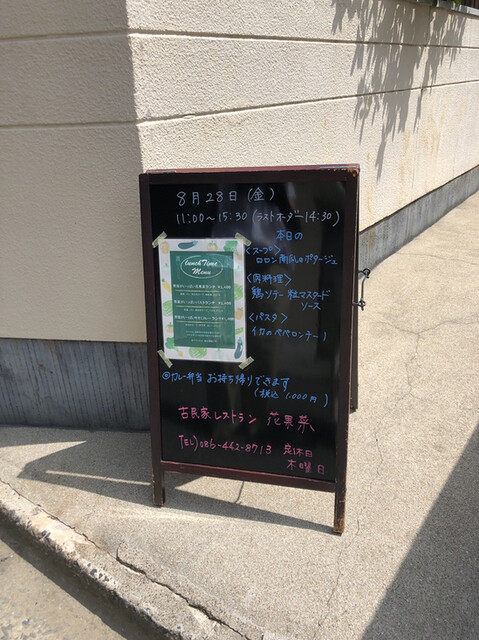 8月28日(金)
11:00～15:30(ラストオーダー14:30)
本日の
〈スープ〉
ロロン南瓜のポタージュ
〈肉料理〉
鶏ソテー 粒マスタード
ソース
〈パスタ〉
イカのペペロンチーノ
Lunch Time
Menu
@カレー弁当 お持ち帰りできます
(税込 1,000円)
古民家レストラン 花果菜
TEL)086-442-8713 定休日
木曜日